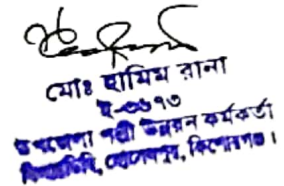 মোঃ হামিম রানা
ই-৩৬১৩
উপজেলা পল্লী উন্নয়ন কর্মকর্তা
বিআরডিবি, হোসেনপুর, কিশোরগঞ্জ।